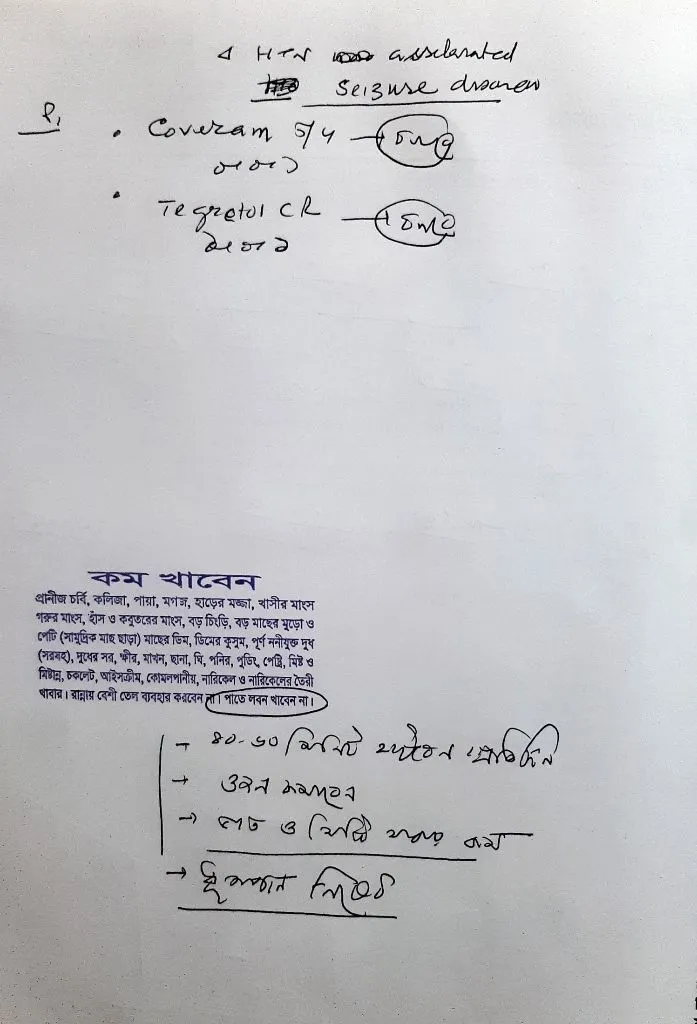 Δ HTN accelarated
Seizure disorder
Rx
• Coveram 5/4 → চলবে
• Tegretol CR → চলবে
কম খাবেন
প্রানীজ চর্বি, কলিজা, পায়া, মগজ, হাড়ের মজ্জা, খাসীর মাংস
গরুর মাংস, হাঁস ও কবুতরের মাংস, বড় চিংড়ি, বড় মাছের মুড়ো ও
পেটি (সামুদ্রিক মাছ ছাড়া) মাছের ডিম, ডিমের কুসুম, পূর্ণ ননীযুক্ত দুধ
(সরসহ), দুধের সর, ক্ষীর, মাখন, ছানা, ঘি, পনির, পুডিং, পেস্ট্রি, মিষ্টি ও
মিষ্টান্ন, চকলেট, আইসক্রীম, কোমলপানীয়, নারিকেল ও নারিকেলের তৈরী
খাবার। রান্নায় বেশী তেল ব্যবহার করবেন না। পাতে লবন খাবেন না।
→ ৪০-৬০ মিনিট হাটবেন প্রতিদিন
→ ওজন কমাবেন
→ ও মিষ্টি খাবার কম
→